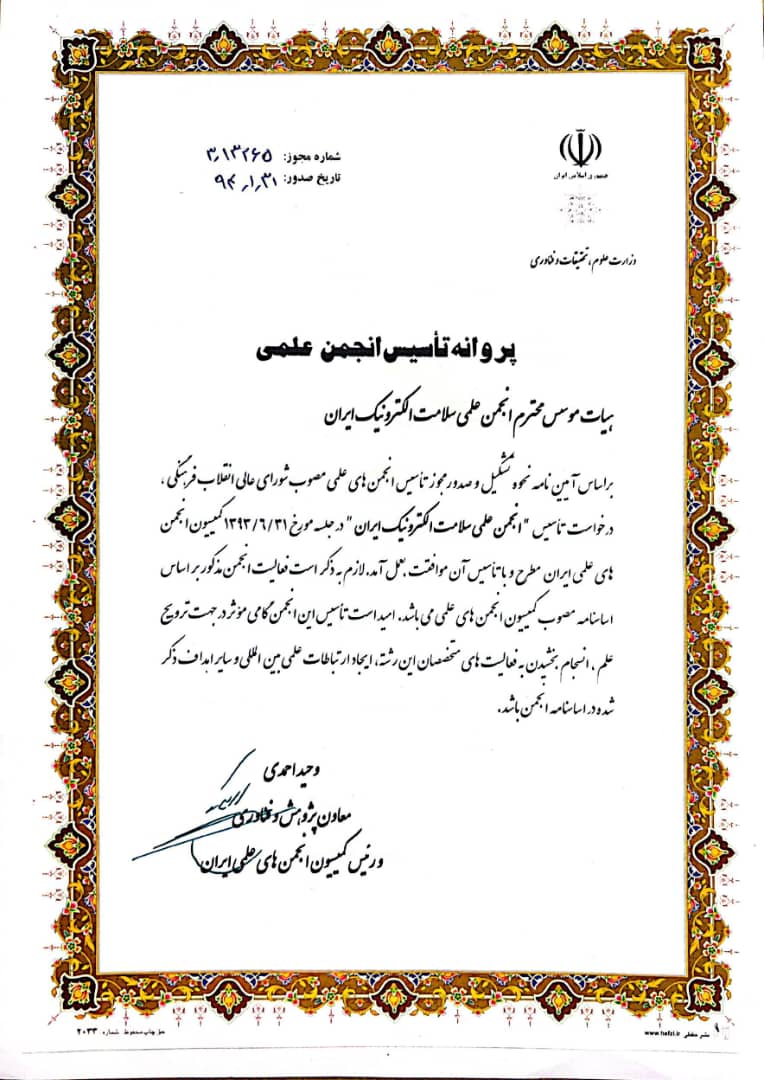 جمهوری اسلامی ایران
وزارت علوم، تحقیقات و فناوری
شماره مجوز: ۳٫۱۳۲۶۵
تاریخ صدور: ۹۴٫۱٫۳۱
پروانه تأسیس انجمن علمی
هیات موسس محترم انجمن علمی سلامت الکترونیک ایران
براساس آیین نامه نحوه تشکیل و صدور مجوز تأسیس انجمن های علمی مصوب شورای عالی انقلاب فرهنگی ،
درخواست تأسیس "انجمن علمی سلامت الکترونیک ایران" در جلسه مورخ ۱۳۹۳/۶/۳۱ کمیسیون انجمن
های علمی ایران مطرح و با تأسیس آن موافقت بعمل آمد. لازم به ذکر است فعالیت انجمن مذکور بر اساس
اساسنامه مصوب کمیسیون انجمن های علمی می باشد. امید است تأسیس این انجمن گامی مؤثر در جهت ترویج
علم ، انسجام بخشیدن به فعالیت های متخصصان این رشته، ایجاد ارتباطات علمی بین المللی و سایر اهداف ذکر
شده در اساسنامه انجمن باشد.
وحید احمدی
معاون پژوهش و فناوری
و رئیس کمیسیون انجمن های علمی ایران
حق چاپ محفوظ شماره ۲۰۳۳
www.hafzi.ir نشر حفظی